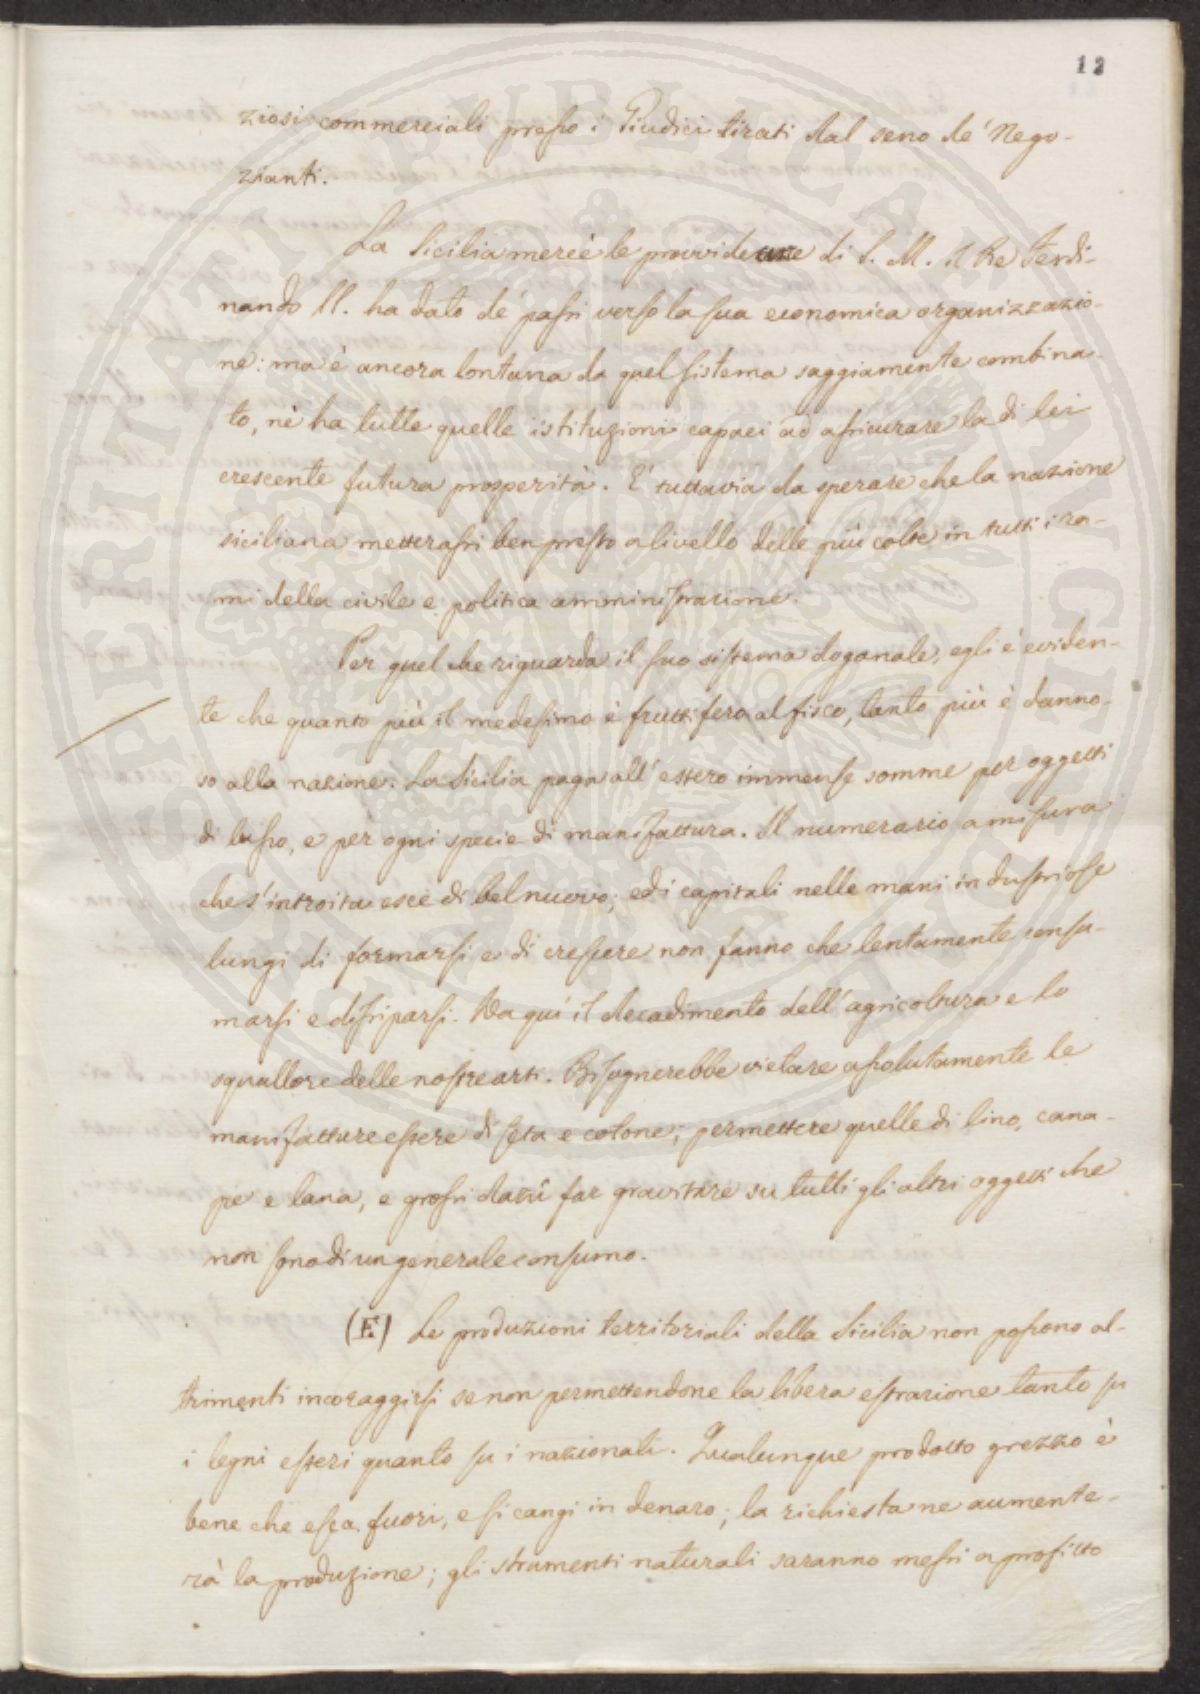 12
ziosi commerciali presso i Giudici tirati dal seno de' Nego-
zianti.
La Sicilia mercè le provvidenze di S. M. il Re Ferdi-
nando II. ha dato de' passi verso la sua economica organizzazio-
ne: ma è ancora lontana da quel sistema saggiamente combina-
to, nè ha tutte quelle istituzioni capaci ad assicurare la di lei
crescente futura prosperità. E' tuttavia da sperare che la nazione
siciliana metterassi ben presto a livello delle più colte in tutti i ra-
mi della civile e politica amministrazione.
Per quel che riguarda il suo sistema doganale, egli è eviden-
te che quanto più il medesimo è fruttifero al fisco, tanto più è danno-
so alla nazione. La Sicilia paga all' estero immense somme per oggetti
di lusso, e per ogni specie di manifattura. Il numerario a misura
che s'introita esce di bel nuovo; ed i capitali nelle mani industriose
lungi di formarsi e di crescere non fanno che lentamente consu-
marsi e dissiparsi. Da qui il decadimento dell' agricoltura e lo
squallore delle nostre arti. Bisognerebbe vietare assolutamente le
manifatture estere di seta e cotone; permettere quelle di lino, cana-
pe e lana, e grossi dazii far gravitare su tutti gli altri oggetti che
non sono di un generale consumo.
(E) Le produzioni territoriali della Sicilia non possono al-
trimenti incoraggirsi se non permettendone la libera estrazione tanto su
i legni esteri quanto su i nazionali. Qualunque prodotto grezzo è
bene che esca fuori, e si cangi in denaro; la richiesta ne aumente-
rà la produzione; gli strumenti naturali saranno messi a profitto